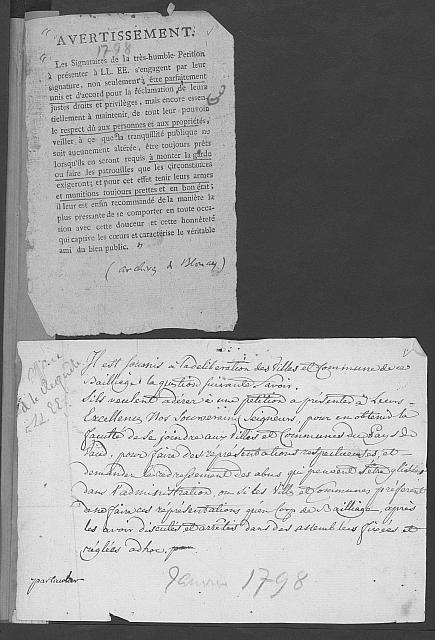 AVERTISSEMENT.
1798
Les Signataires de la très-humble Petition
à présenter à LL. EE. s'engagent par leur
signature, non seulement à être parfaitement
unis et d'accord pour la réclamation de leurs
justes droits et privilèges, mais encore essen-
tiellement à maintenir, de tout leur pouvoir
le respect dû aux personnes et aux propriétés,
veiller à ce que la tranquillité publique ne
soit aucunement altérée, être toujours prêts
lorsqu'ils en seront requis à monter la garde
ou faire les patrouilles que les circonstances
exigeront; et pour cet effet tenir leurs armes
et munitions toujours prettes et en bon état;
il leur est enfin recommandé de la manière la
plus pressante de se comporter en toute occa-
sion avec cette douceur et cette honnêteté
qui captive les cœurs et caractérise le véritable
ami du bien public. »
(archives de Blonay)
Il est soumis à la deliberation des Villes et Commune de ce
Bailliage la question suivante. Savoir.
S'ils veulent adérer à une petition a presenter à Leurs
Excellences Nos Souverains Seigneurs, pour en obtenir la
faculté de se joindre aux Villes et Communes du Pays de
Vaud, pour faire des représentations respectueuses, et
demander le redressement des abus qui peuvent s'être glissés
dans l'administration, ou si les Villes et Communes préferent
de ne faire ces representations qu'en Corps de Bailliage, après
les avoir discutés et arrêtés dans des assemblées fixées et
réglées ad hoc.
Janvier 1798